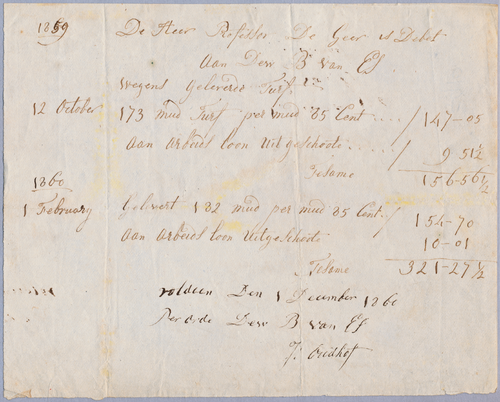 1859 De Heer Professor De Geer is Debet
Aan Derv B van Es
Wegens Geleverde Turf
12 October 173 mud Turf per mud 85 Cent . . . . / 147-05
Aan Arbeids loon Uitgeschoote . . . . . / 9 51½
Tesame 156-56½
1860
1 February Gelevert 182 mud per mud 85 Cent / 154-70
Aan Arbeids loon Uitgeschoote 10-01
Tesame 321-27½
voldaan Den 1 December 1860
Per orde Derv B van Es